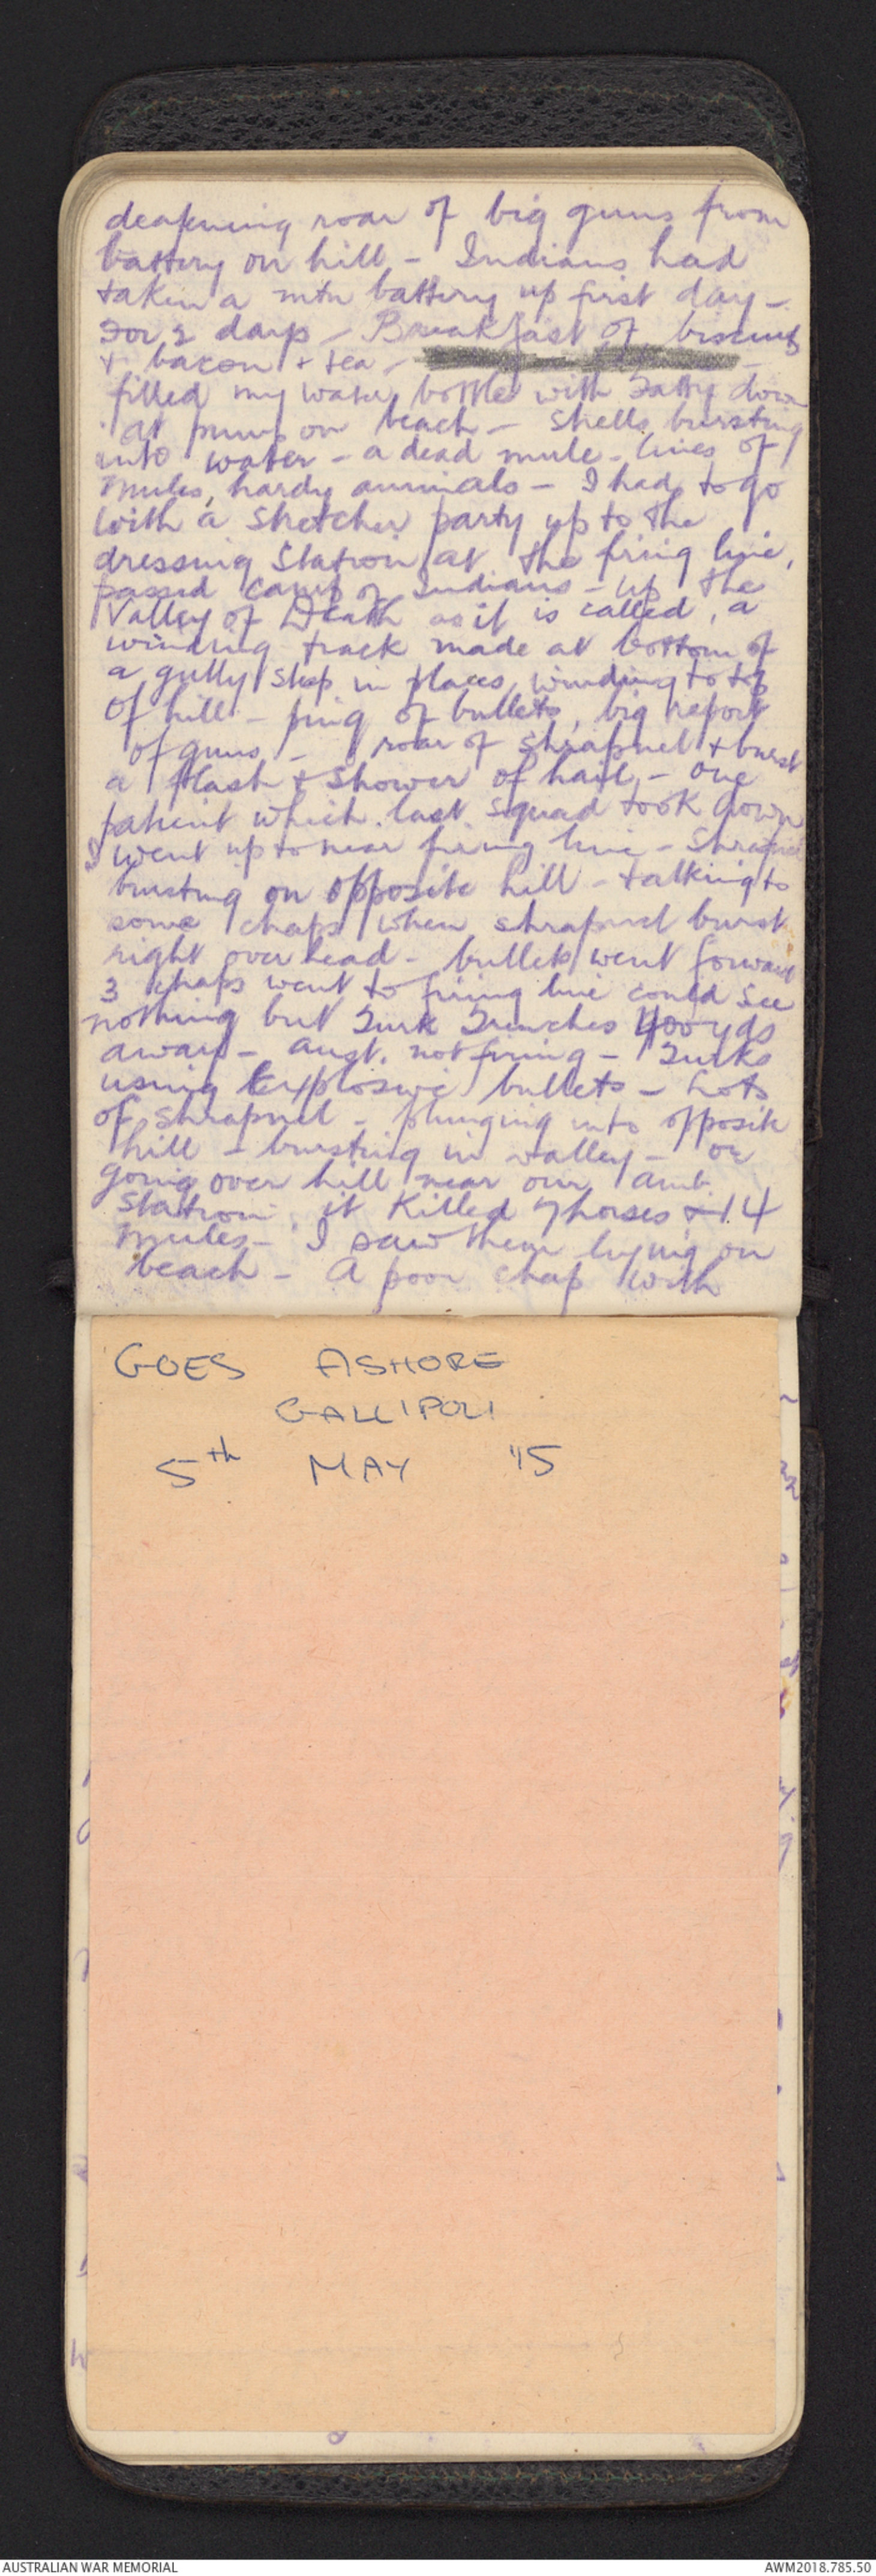 deafening roar of big guns from
battery on hill - Indians had
taken a mtn battery up first day -
for 2 days - Breakfast of biscuits
& bacon & tea -
filled my water bottle with Fatty down
at pump on beach - shells bursting
into water - a dead mule - lines of
mules, hardy animals - I had to go
with a stretcher party up to the
dressing station at the firing line,
passed camp of Indians - up the
Valley of Death as it is called, a
winding track made at bottom of
a gully steep in places, winding to top
of hill - ping of bullets, big report
of guns, - roar of shrapnel & burst
a flash & shower of hail, - one
patient which last squad took down
I went up to near firing line - Shrapnel
bursting on opposite hill - talking to
some chaps when shrapnel burst
right over head - bullets went forward
3 chaps went to firing line could see
nothing but Turk Trenches 400 yds
away - Aust. not firing - Turks
using explosive bullets - Lots
of shrapnel - plunging into opposite
hill - bursting in valley - or
going over hill near our amb.
station, it killed 7 horses & 14
mules - I saw them lying on
beach - A poor chap with
GOES ASHORE
GALLIPOLI
5th MAY '15
AUSTRALIAN WAR MEMORIAL
AWM2018.785.50